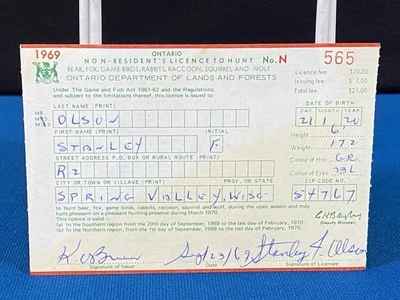 1969
ONTARIO
NON-RESIDENT'S LICENCE TO HUNT No. N 565
BEAR, FOX, GAME BIRDS, RABBITS, RACCOON, SQUIRREL AND WOLF
ONTARIO DEPARTMENT OF LANDS AND FORESTS
Licence fee $20.00
Issuing fee $ 1.00
Total fee $21.00
Under The Game and Fish Act 1961-62 and the Regulations,
and subject to the limitations thereof, this licence is issued to:
LAST NAME (PRINT)
DATE OF BIRTH
MR.
OLSON
DAY MONTH YEAR
21 1 20
FIRST NAME (PRINT) INITIAL
Height 6'
STANLEY F
Weight 172
STREET ADDRESS P.O. BOX OR RURAL ROUTE (PRINT)
Colour of Hair GR
R2
Colour of Eyes BL
CITY OR TOWN OR VILLAGE (PRINT) PROV. OR STATE
ZIP CODE NO.
SPRING VALLEY, WISC
54767
to hunt bear, fox, game birds, rabbits, raccoon, squirrel and wolf, during the open season and may
hunt pheasant on a pheasant hunting preserve during March 1970.
This licence is valid:
(a) in the Southern region from the 20th day of September, 1969 to the last day of February, 1970.
(b) in the Northern region from the 1st day of September, 1969 to the last day of February, 1970.
(Deputy Minister)
K. O'Brien Sept/23/69 Stanley F. Olson
Signature of Issuer
Signature of Licensee